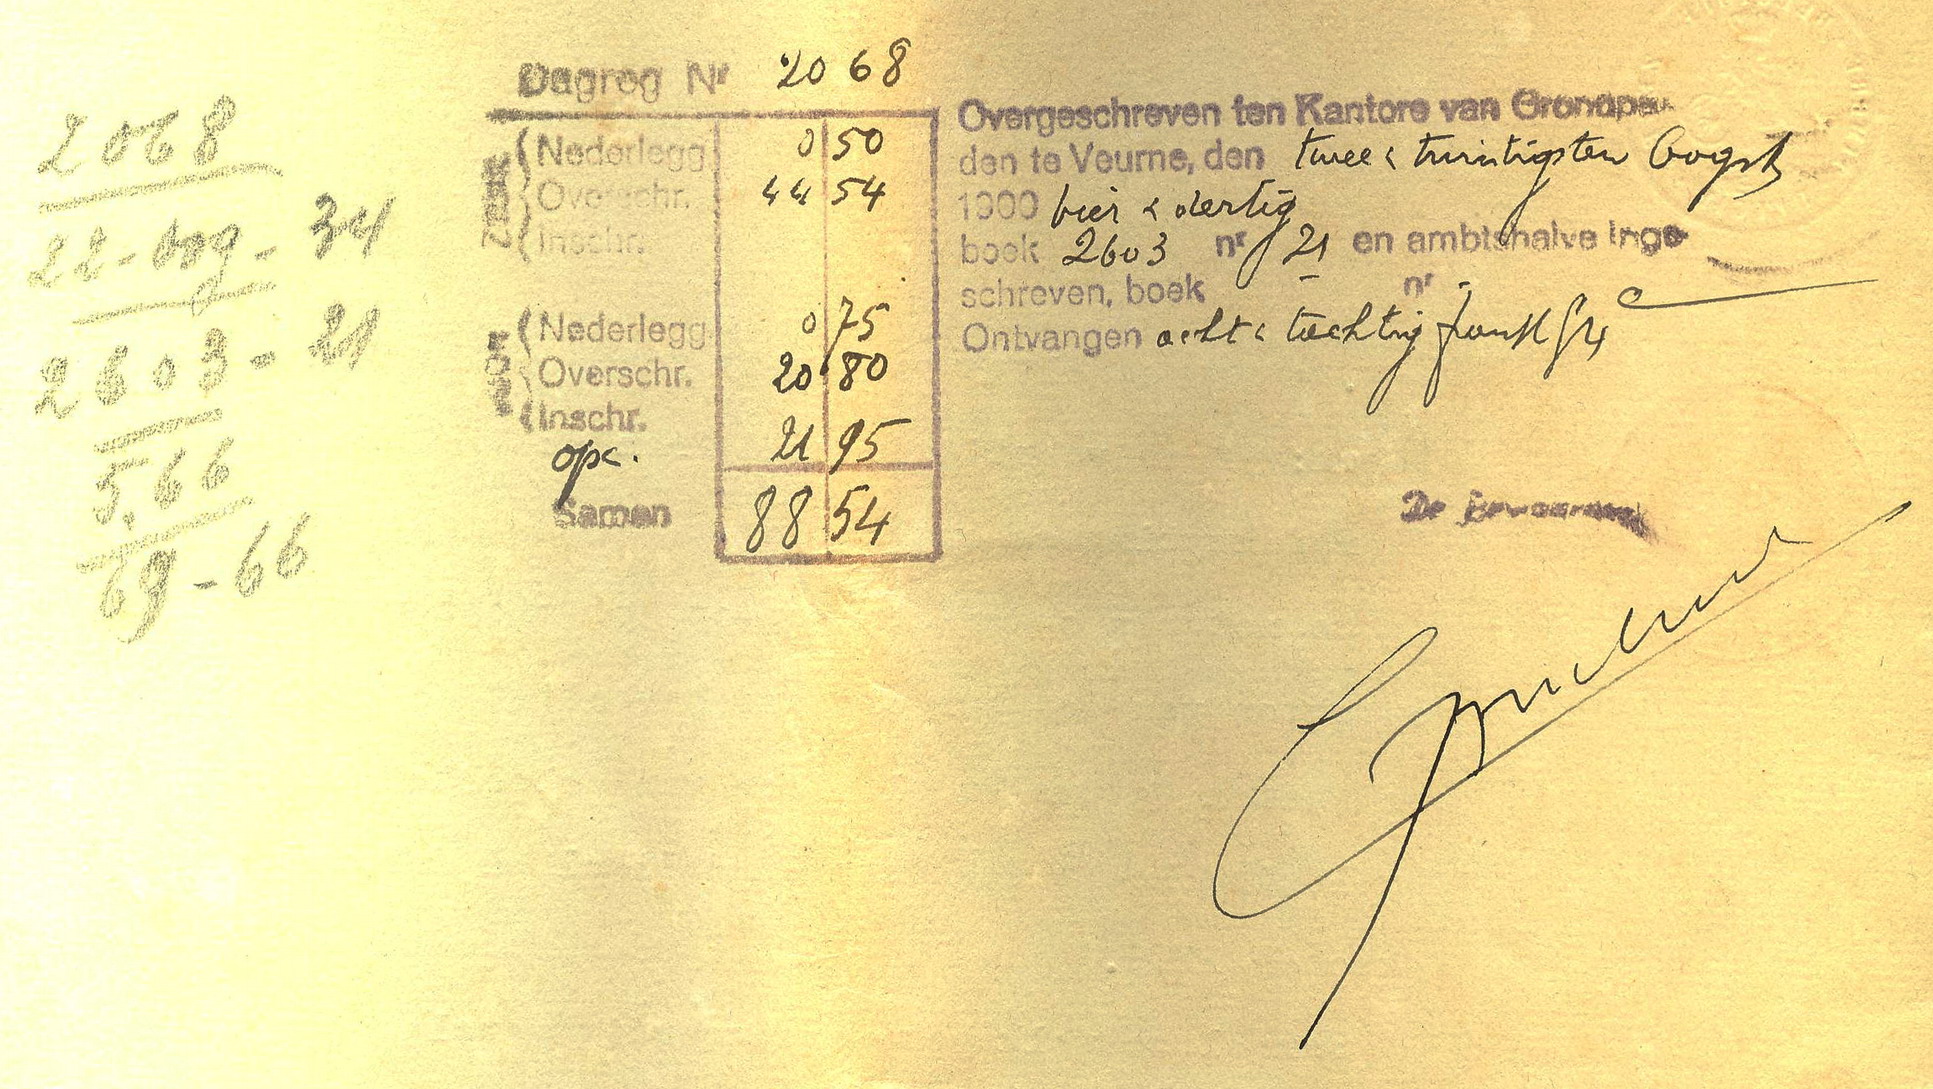 2068
22-oog-34
2603-21
5,66
69-66
Dagreg Nr 2068
Nederlegg. 0 50
Overschr. 44 54
Inschr.
Nederlegg. 0 75
Overschr. 20 80
Inschr.
opc. 21 95
Samen 88 54
Overgeschreven ten Kantore van
den te Veurne, den twee & twintigsten Oogst
1900 vier & dertig
boek 2603 nr 21 en ambtshalve Inge
schreven, boek nr
Ontvangen acht & tachtig frank
De